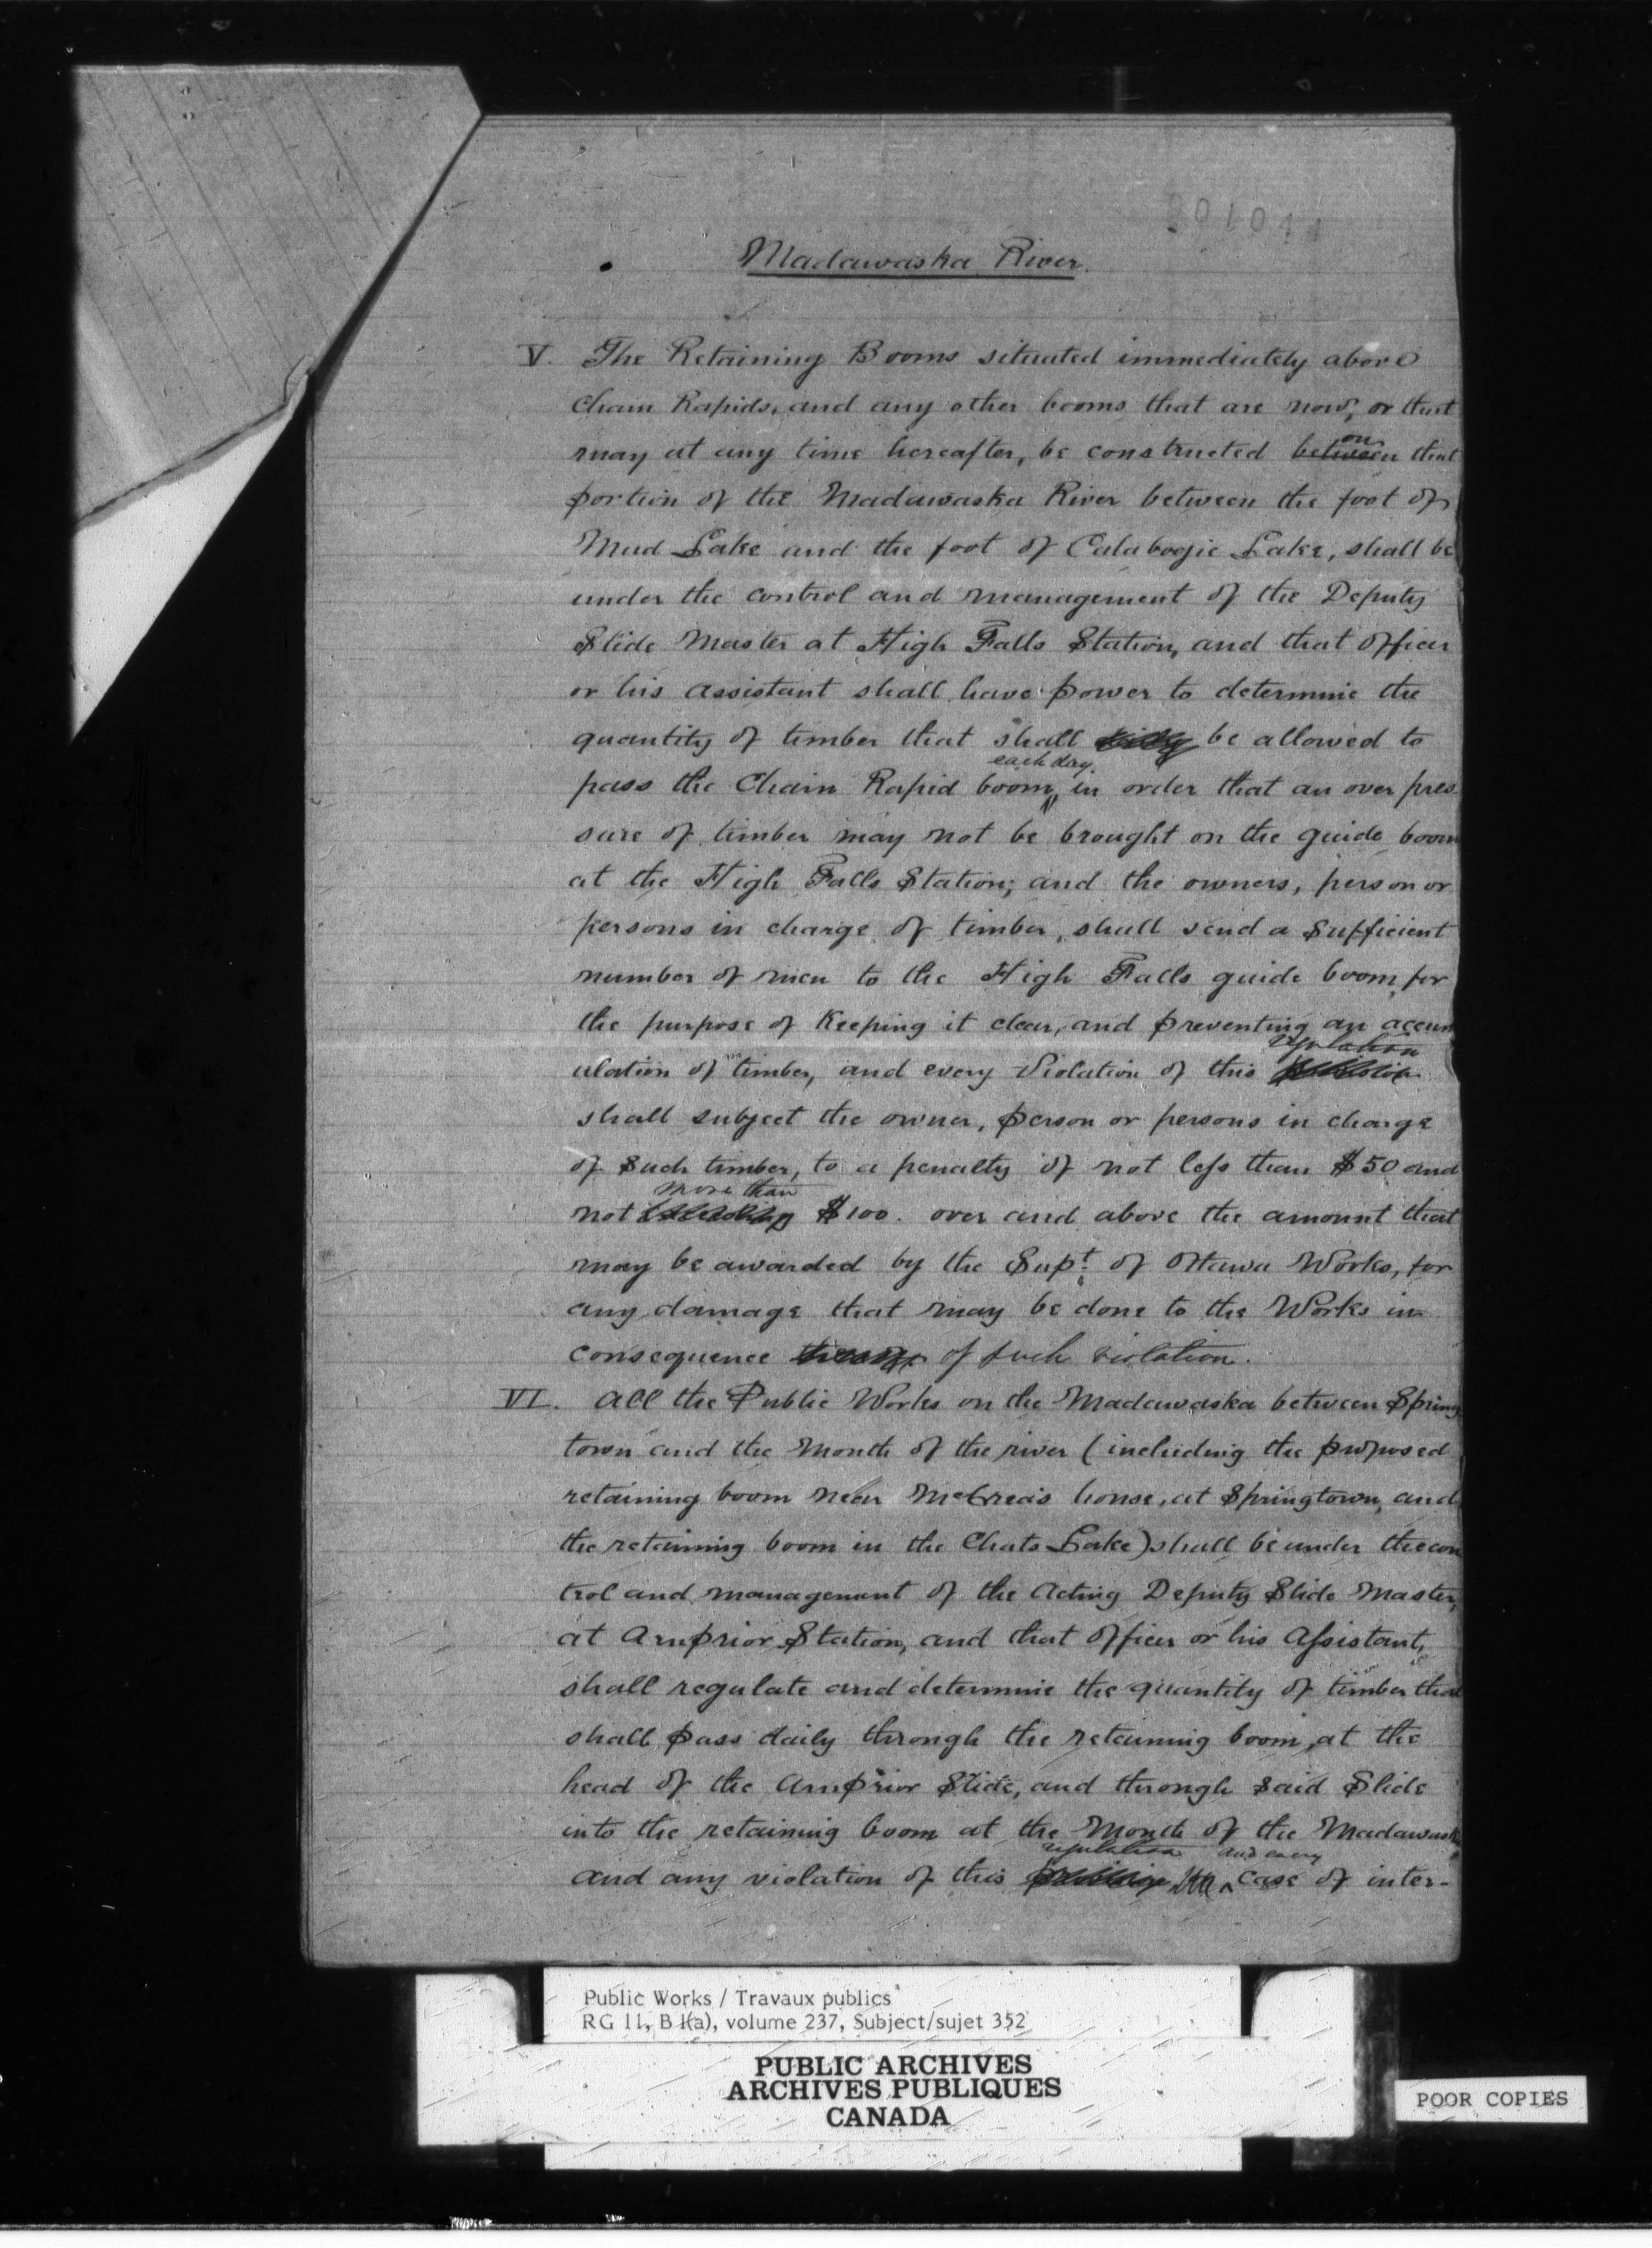 Madawaska River.
V. The Retaining Booms situated immediately above
Chain Rapids, and any other booms that are now, or that
on
may at any time hereafter, be constructed between that
portion of the Madawaska River between the foot of
Mud Lake and the foot of Calabogie Lake, shall be
under the control and management of the Deputy
Slide Master at High Falls Station, and that officer
or his assistant shall have power to determine the
quantity of timber that shall be allowed to
each day
pass the Chain Rapid boom, in order that an over pres
sure of timber may not be brought on the guide boom
at the High Falls Station; and the owners, person or
persons in charge of timber, shall send a sufficient
number of men to the High Falls guide boom, for
the purpose of Keeping it clear, and preventing an accum
regulation
ulation of timber, and every Violation of this
shall subject the owner, person or persons in charge
of such timber, to a penalty of not less than $50 and
more than
not $100. over and above the amount that
may be awarded by the Supt. of Ottawa Works, for
any damage that may be done to the Works in
consequence of such violation.
VI. All the Public Works on the Madawaska between Spring
town and the Mouth of the river (including the proposed
retaining boom near McCrea's house, at Springtown, and
the retaining boom in the Chats Lake) shall be under the con
trol and management of the Acting Deputy Slide Master,
at Arnprior Station, and that officer or his Assistant,
shall regulate and determine the quantity of timber that
shall pass daily through the retaining boom, at the
head of the Arnprior Slide, and through said Slide
into the retaining boom at the Mouth of the Madawaska
regulation and every
and any violation of this case of inter-
Public Works / Travaux publics
RG 11, B 1(a), volume 237, Subject/sujet 352
PUBLIC ARCHIVES
ARCHIVES PUBLIQUES
CANADA
POOR COPIES